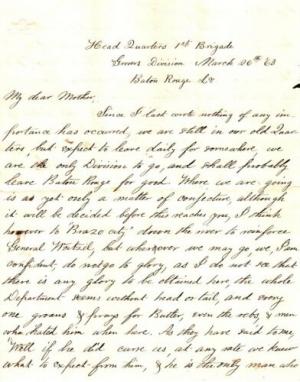 Head Quarters 1st Brigade
Grovers Division March 26th 63
Baton Rouge La
My dear Mother,
Since I last wrote nothing of any im-
portance has occurred, we are still in our old Quar-
ters but expect to leave daily for somewhere, we
are the only Division to go, and shall probably
leave Baton Rouge for good. Where we are going
is as yet only a matter of conjecture, although
it will be decided before this reaches you, I think
however to "Brazo city" down the river to reinforce
General Weitzel, but wherever we may go, we, I am
confident, do not go to glory, as I do not see that
there is any glory to be obtained here, the whole
Department seems without head or tail, and every
one groans & prays for Butler, even the rebs, & men
who hated him when here. As they have said to me,
"Well if he did curse us, at any rate we knew
what to expect from him, & he is the only man who